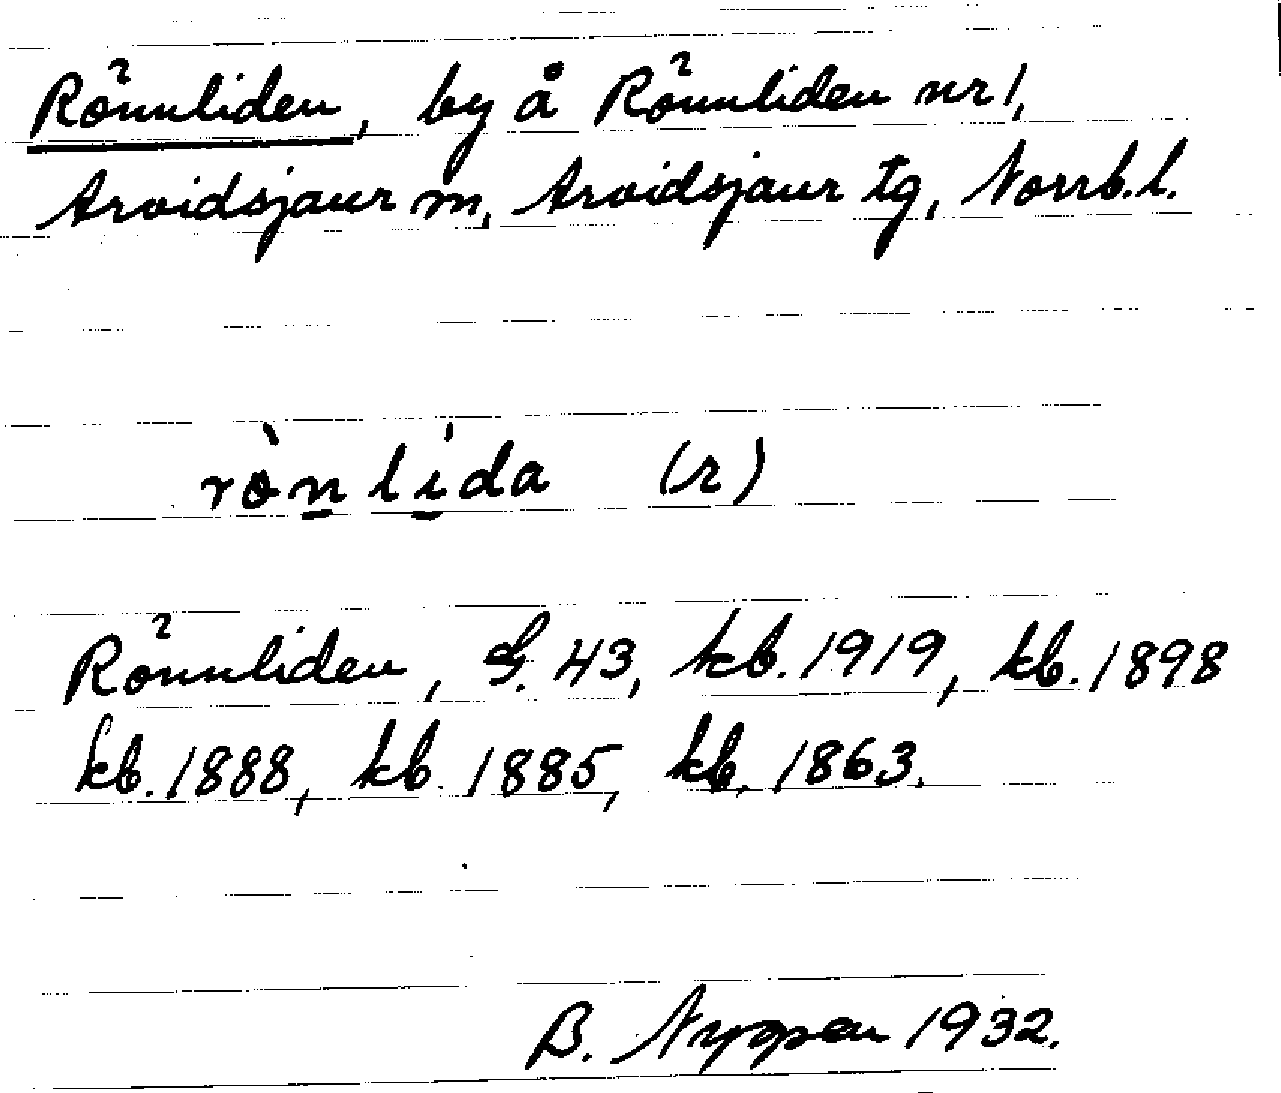 Rönnliden, by å Rönnliden nr 1,
Arvidsjaur sn, Arvidsjaur tg, Norrb. l.
rònlída (r)
Rönnliden, G. 43, kb. 1919, kb. 1898
kb. 1888, kb. 1885, kb. 1863.
B. 1932.